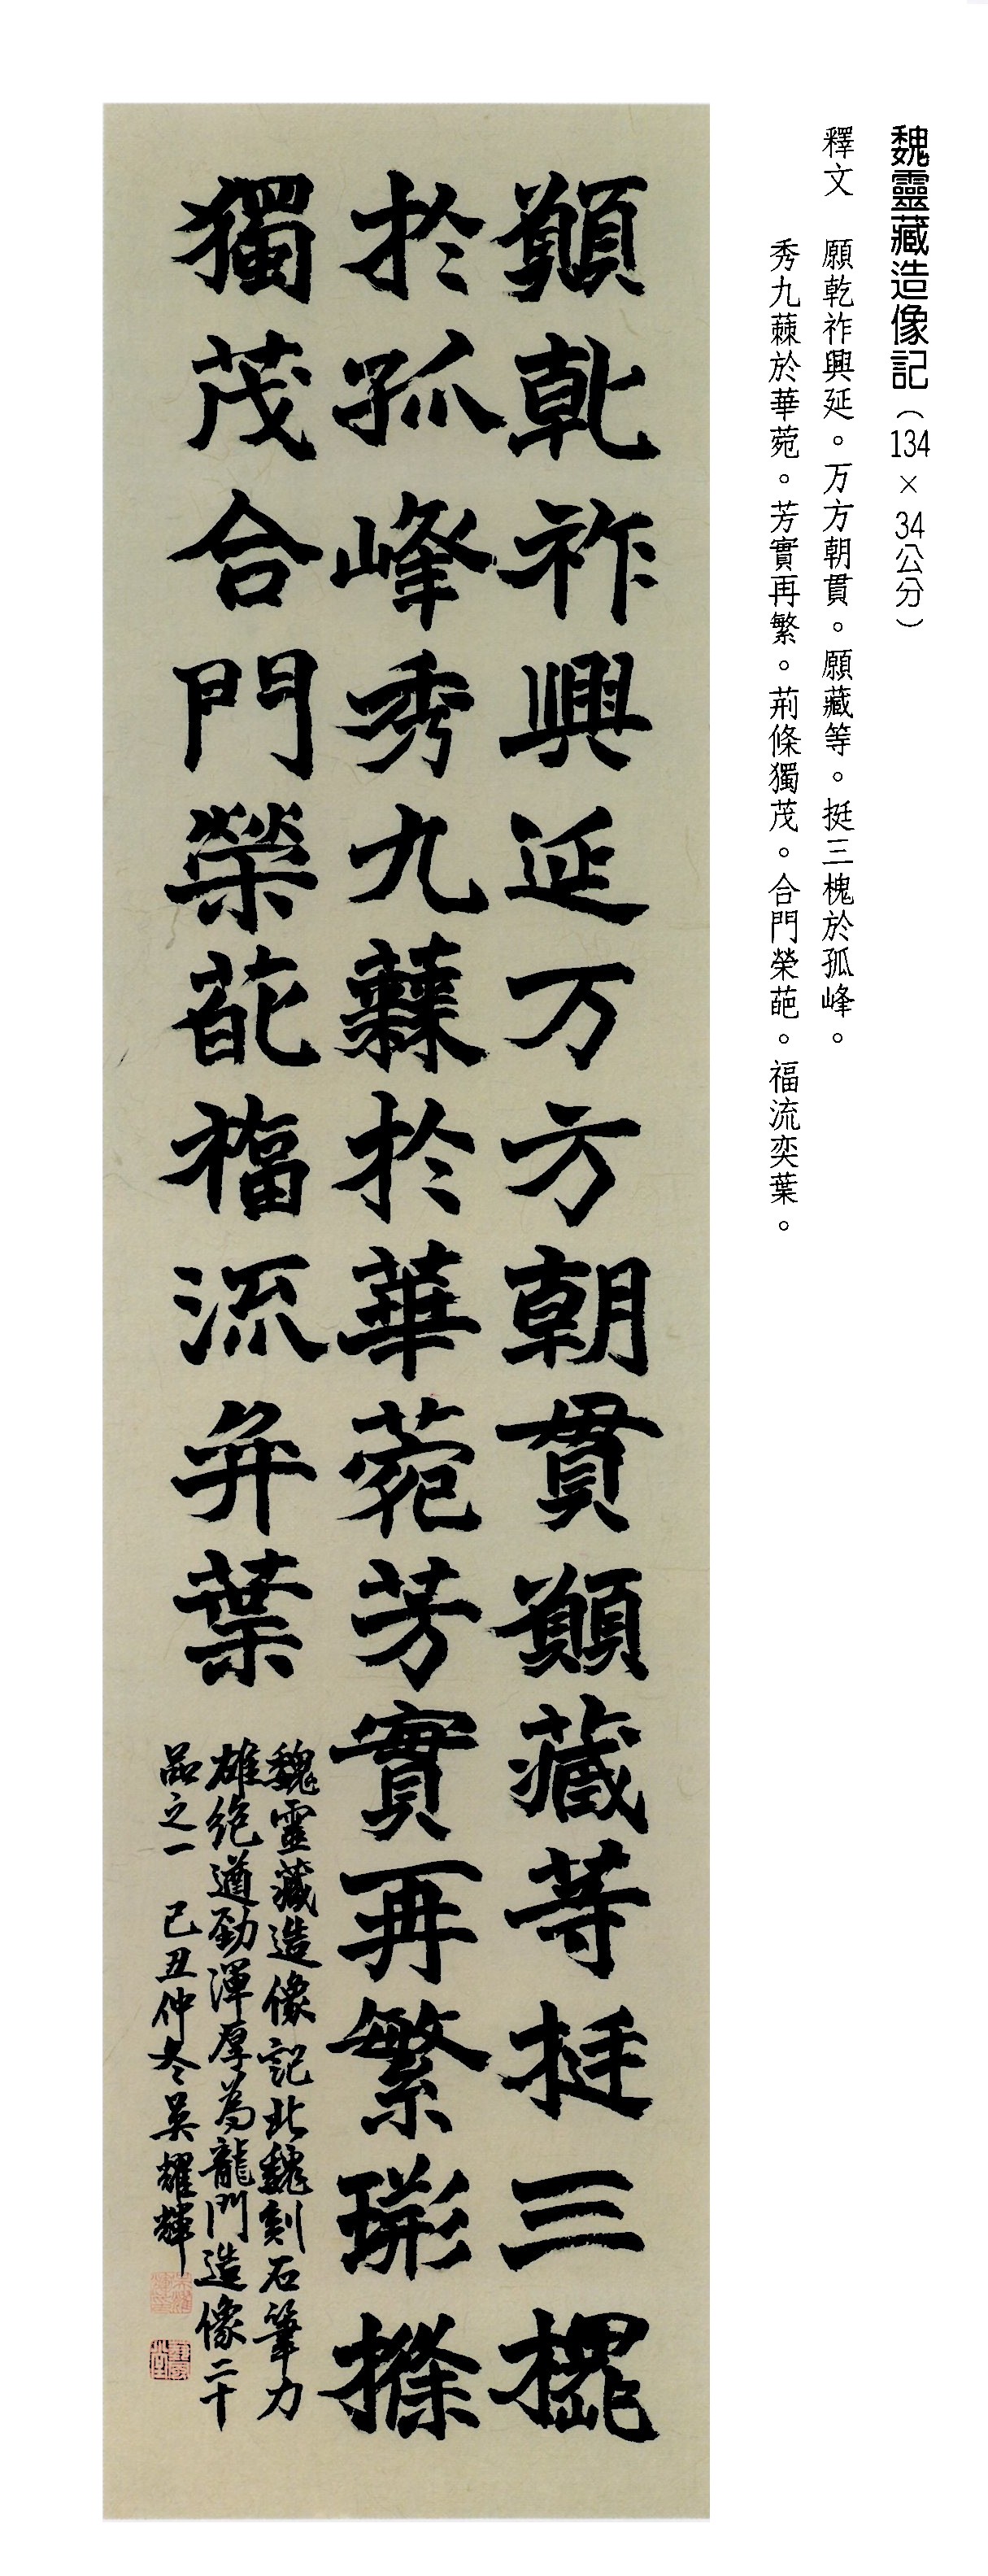 魏靈藏造像記（134×34公分）
釋文　願乾祚興延。万方朝貫。願藏等。挺三槐於孤峰。
秀九蕀於華菀。芳實再繁。荊條獨茂。合門榮葩。福流奕葉。
顛乾祚興延万方朝貫顛藏等挺三槐
於孤峰秀九蕀於華菀芳實再繁荊條
獨茂合門榮葩福流弈葉
魏靈藏造像記北魏刻石筆力
雄絶遒勁渾厚為龍門造像二十
品之一　己丑仲冬吳耀輝